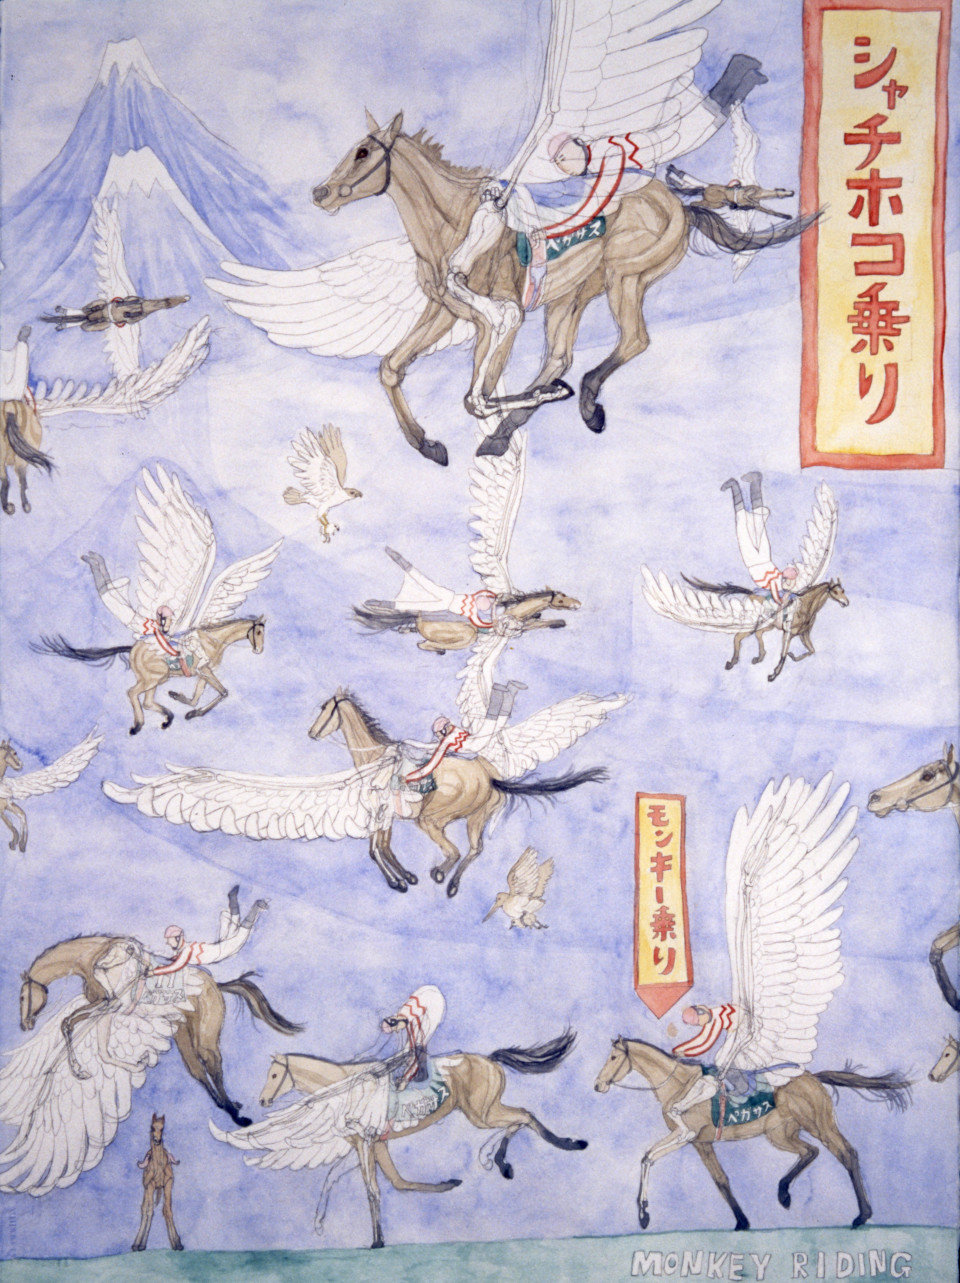 シャチホコ乗り
ペガサス
モンキー乗り
ペガサス
ペガサス
ペガサス
MONKEY RIDING